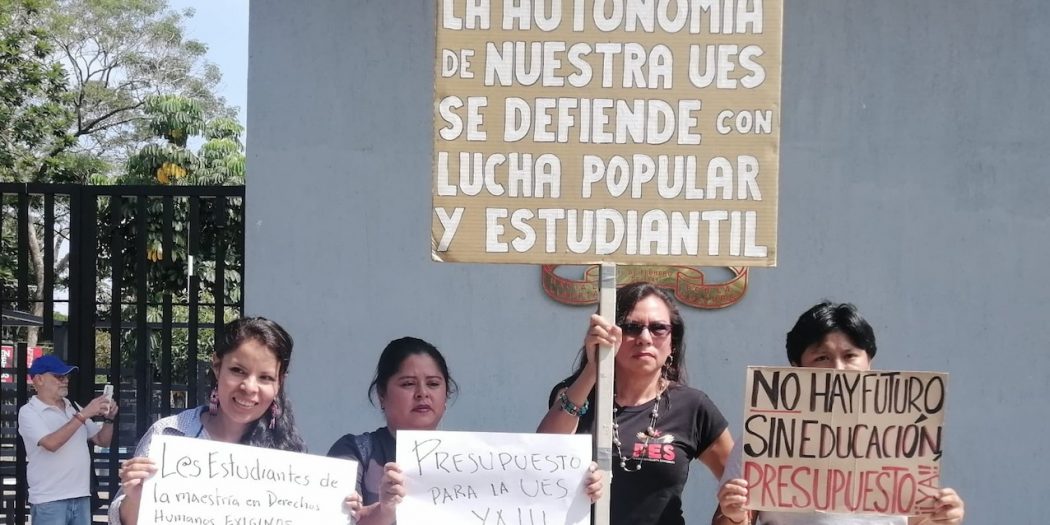 LA AUTONOMÍA
DE NUESTRA UES
SE DEFIENDE CON
LUCHA POPULAR
Y ESTUDIANTIL
L@s Estudiantes de
la maestría en Derechos
Humanos EXIGIMOS
PRESUPUESTO
PARA LA UES
YA!!!
NO HAY FUTURO
SIN EDUCACIÓN,
PRESUPUESTO
¡¡YA!!